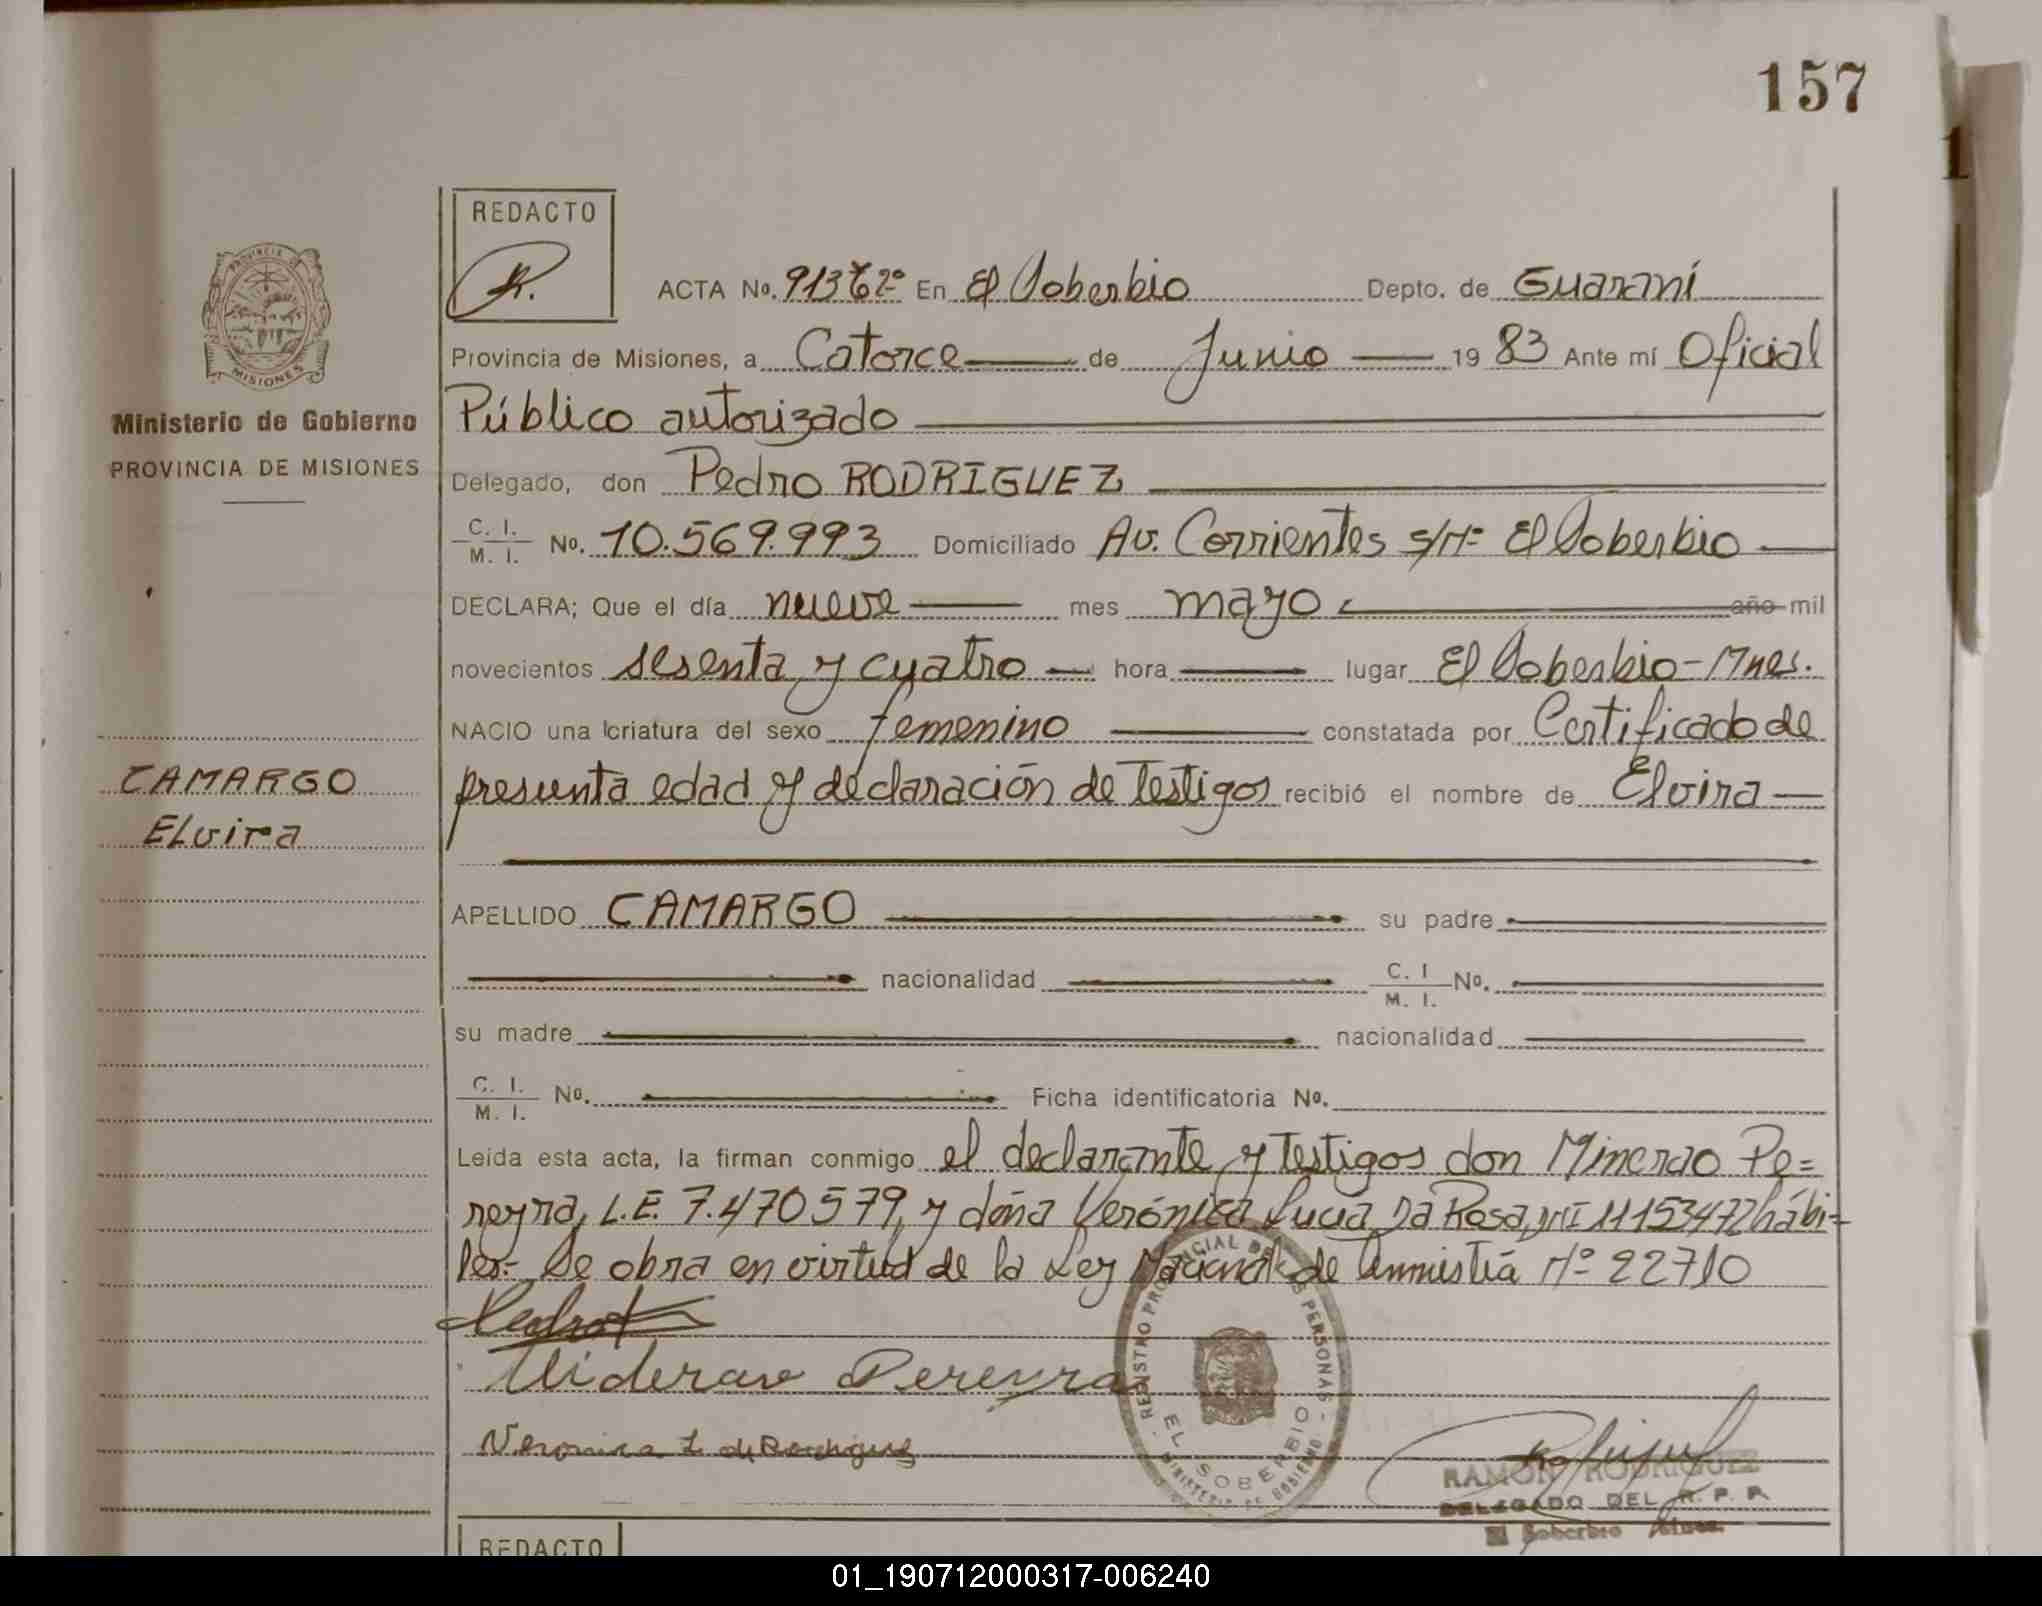 157
REDACTO
R.
PROVINCIA DE
MISIONES
Ministerio de Gobierno
PROVINCIA DE MISIONES
CAMARGO
Elvira
ACTA No. En El Soberbio Depto. de Guaraní
Provincia de Misiones, a Catorce de Junio 19 83 Ante mí Oficial
Público autorizado
Delegado, don Pedro RODRIGUEZ
C. I. M. I. No. 10.569.993 Domiciliado Av. Corrientes s/Nº El Soberbio
DECLARA; Que el día nueve mes mayo año mil
novecientos sesenta y cuatro hora lugar El Soberbio-Mnes.
NACIO una criatura del sexo femenino constatada por Certificado de
presunta edad y declaración de testigos recibió el nombre de Elvira
APELLIDO CAMARGO su padre
nacionalidad C. I M. I. No.
su madre nacionalidad
C. I. M. I. No. Ficha identificatoria No.
Leída esta acta, la firman conmigo el declarante y testigos don Pe=
reyra, L.E. 7.470579, y doña Verónica Lucía Da Rosa, 11153472 hábi=
les.- Se obra en virtud de la Ley Nacional de Amnistía Nº 22710
Pedro
Pereyra
Veronica L. de Rodriguez
REGISTRO PROVINCIAL DE PERSONAS
EL SOBERBIO
MINISTERIO DE GOBIERNO
RAMON RODRIGUEZ
DELEGADO DEL R. P. P.
El Soberbio Mnes.
REDACTO
01_190712000317-006240